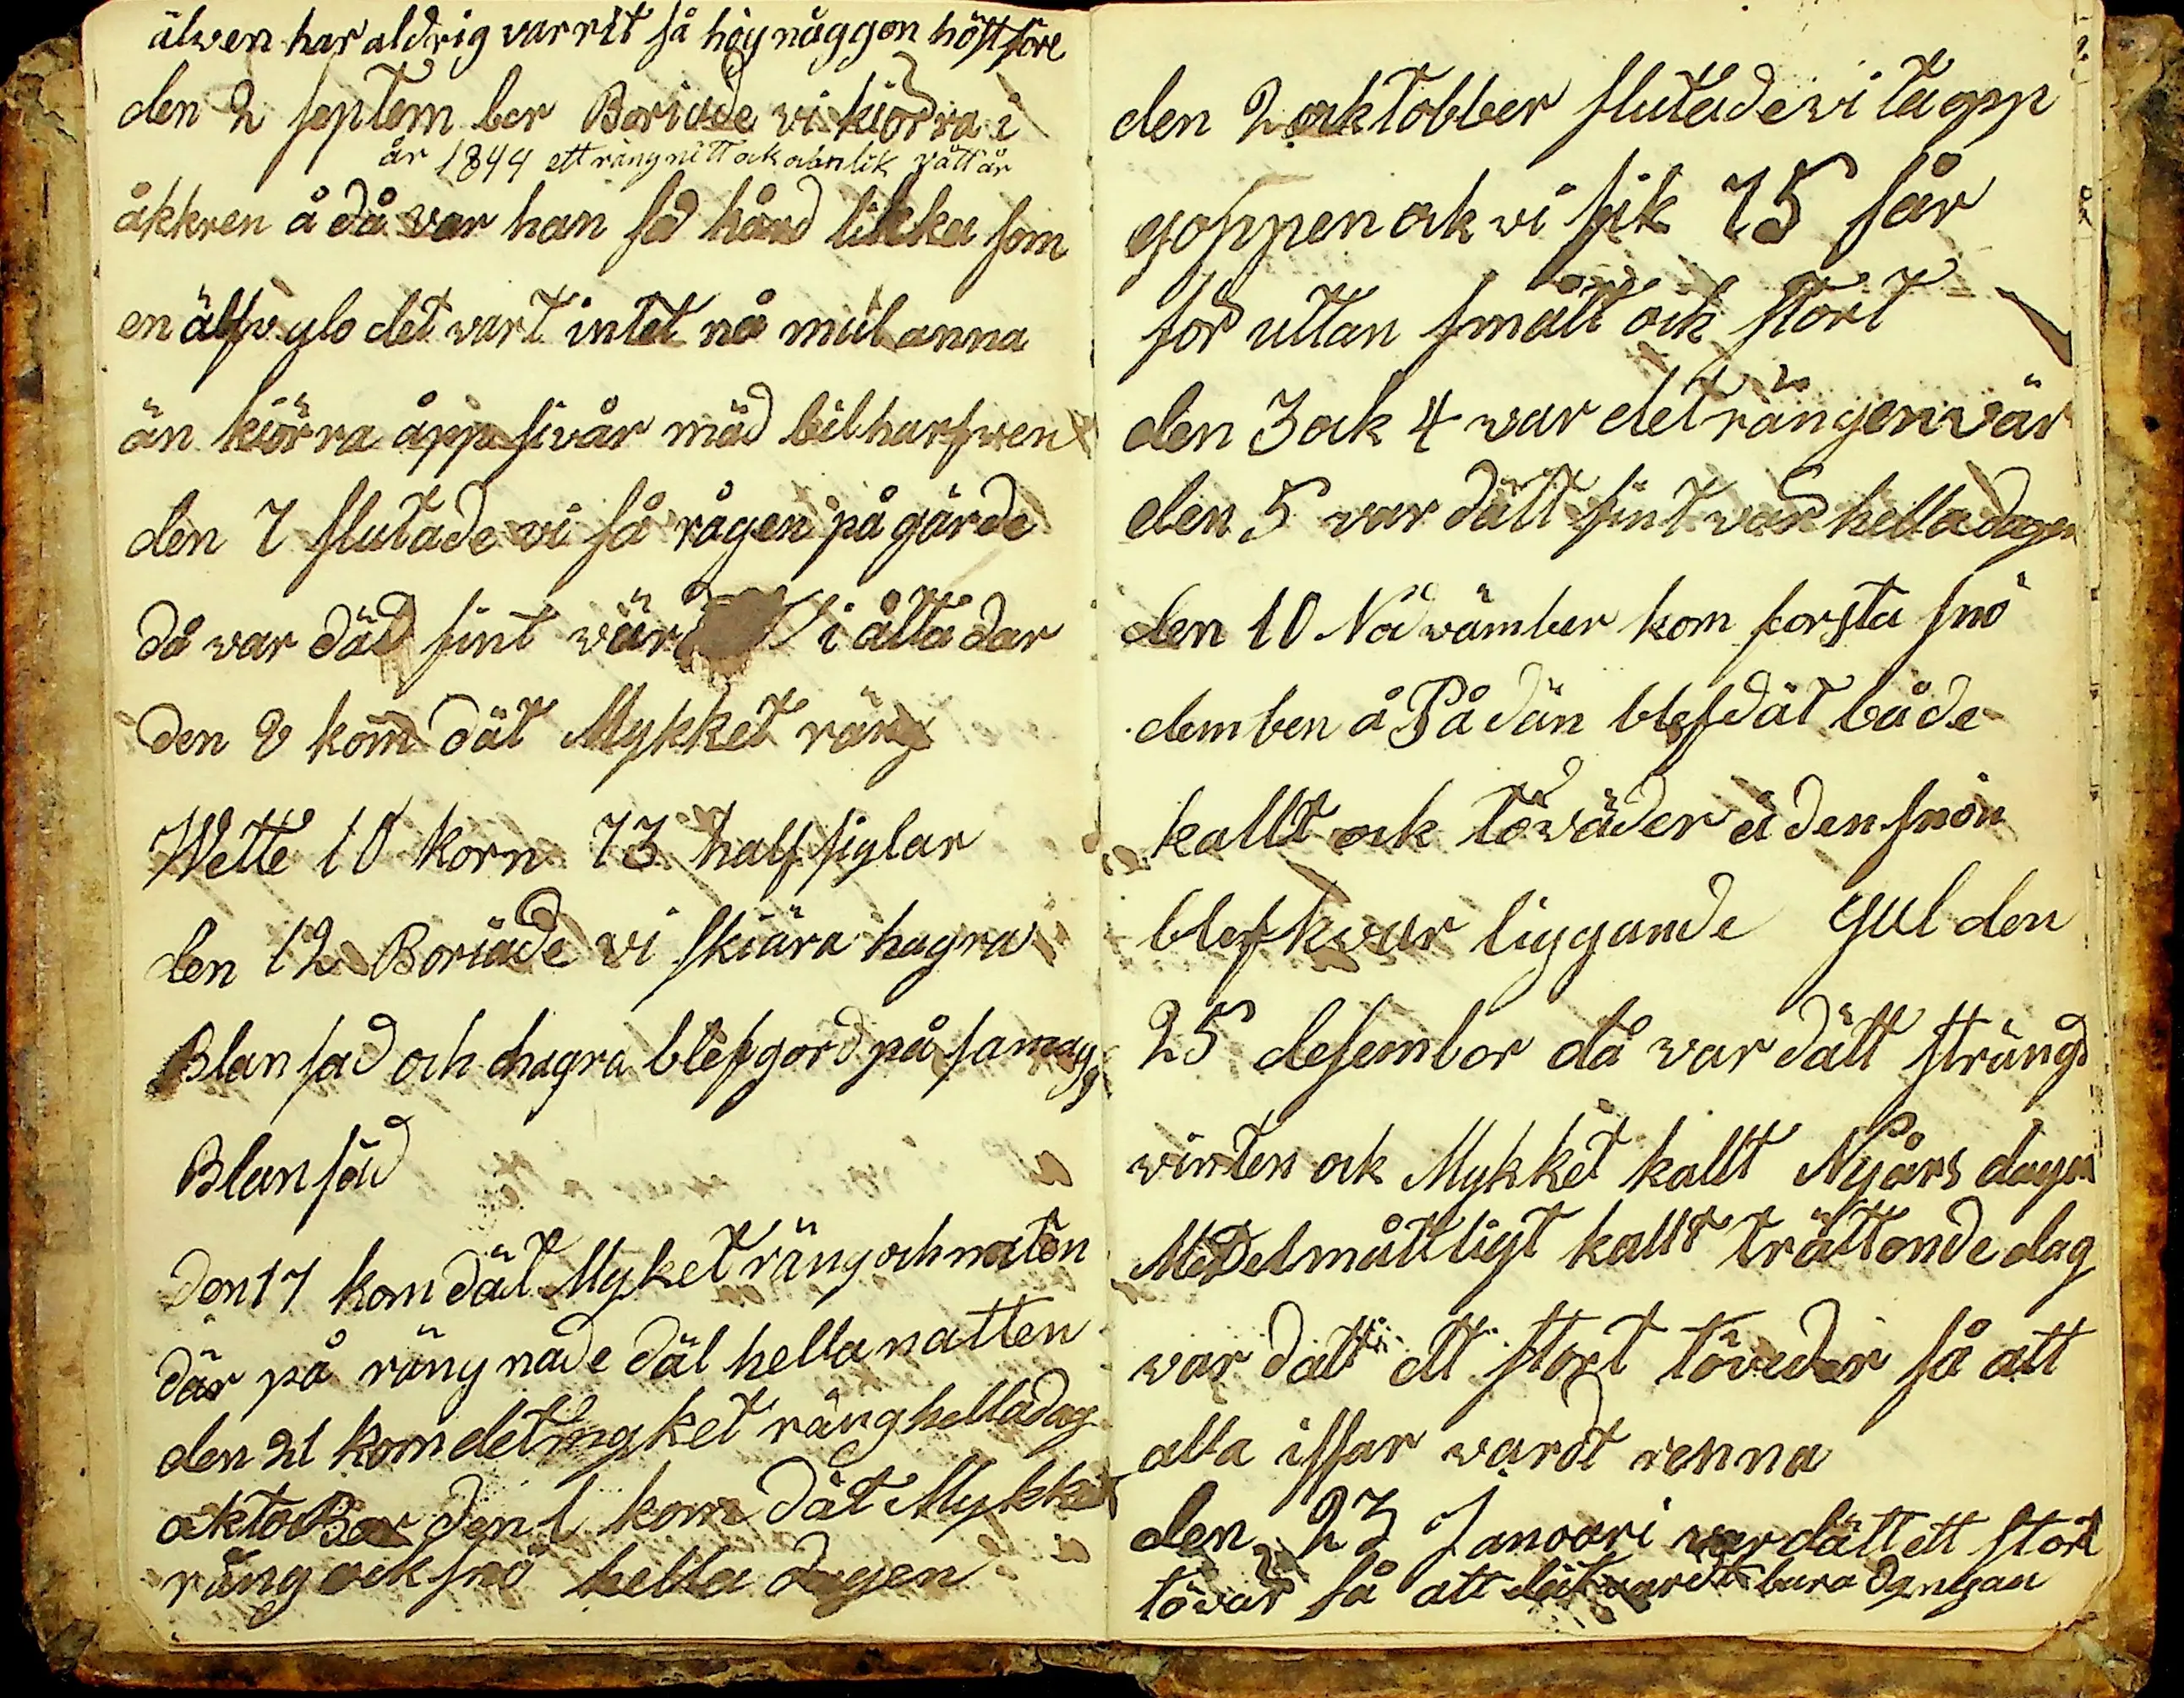 älven har aldrig varrit så höy någgon höst före
den 2 september Boriade vi kiörra i
år 1844 ett rängnitt ock vått år
åkkren å då var han så hård likka som
en älfv det vart intet nå anna
än kiörra åpp sivår mäd bilharfwen
den 7 slutade vi så rågen på gärde
då var däd fint vär i åtta dar
den 8 kom dät Mykket räng
Wette 10 korn 73 half siglar
den 12 Boriade vi skiära hagra
Blan säd och hagra blef gord på samma
Blan säd
den 17 kom dät Myket räng och naten
där på rängnade dät hella natten
den 21 kom det myket räng hella dag
oktober den 1 kom dät Mykket
räng ock snö hella dagen
den 2 oktobber slutade vi ta opp
goppen ok vi fik 75 sår
for uttan smått ock stort
den 3 ok 4 var det rängen vär
den 5 var dätt fint vär hella dagen
den 10 Nodvämber kom forsta snö
demben å På dän blef dät både
kallt ock töväder å den snön
blef kvar liggande gul den
25 desembor då var dätt sträng
vinten ock Mykket kallt Nyårs dagen
Medelmåttligt kallt trättonde dag
var dätt ett stort töveder så att
alla issar vardt renna
den 23 Janoari var dätt ett stort
tövär så att dät vardt bara